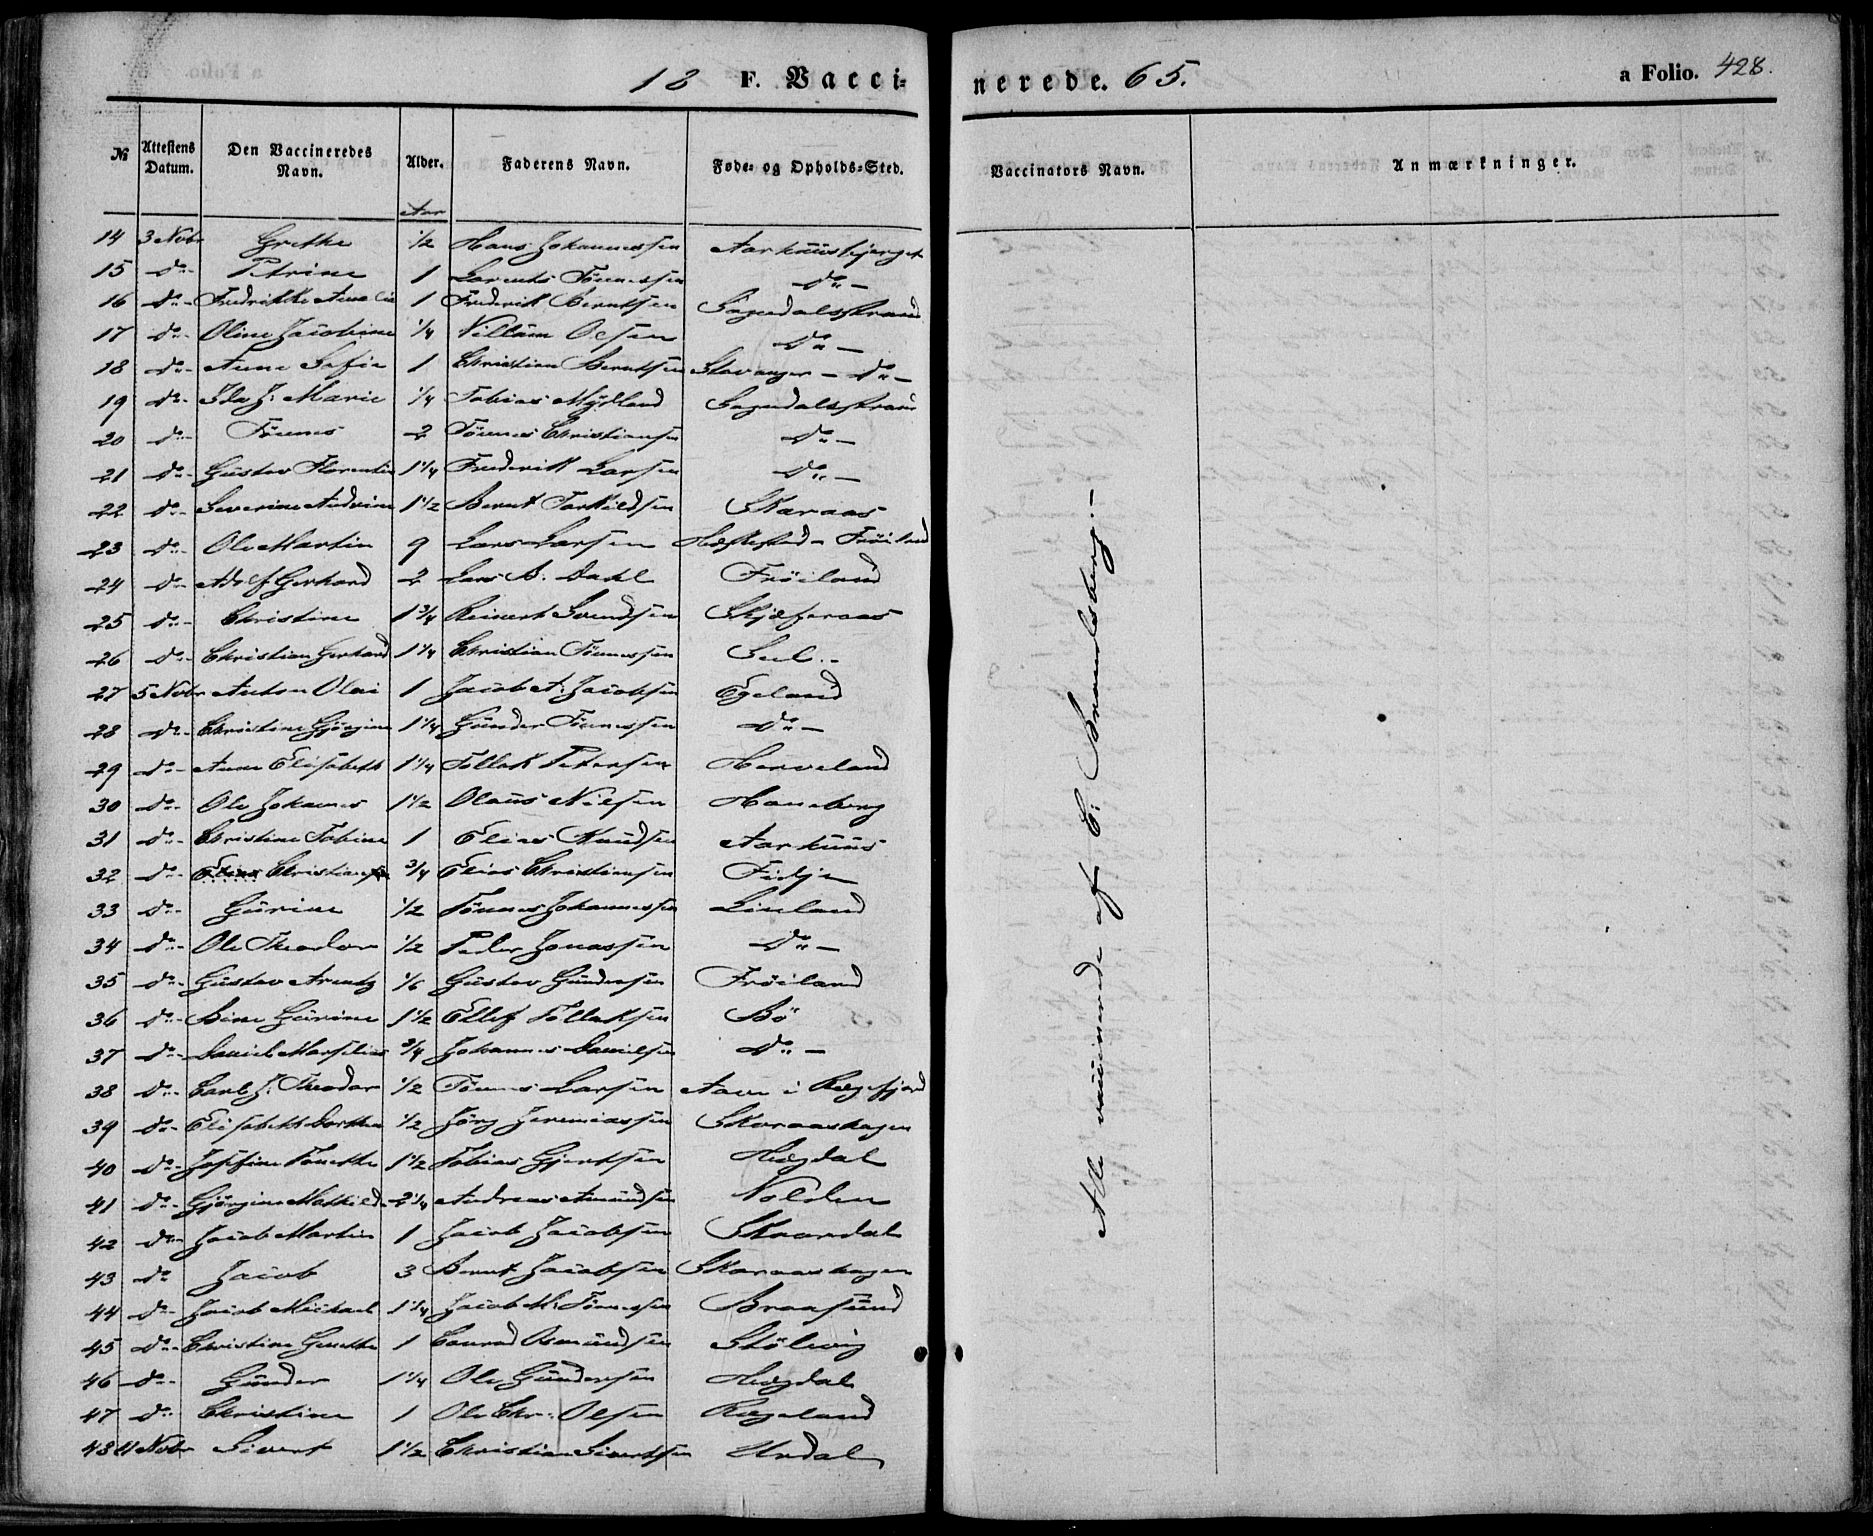 18 F. Vaccinerede. 65. a Folio. 428.
№ Attestens Datum. Den Vaccineredes Navn. Alder. Faderens Navn. Føde- og Opholds-Sted. Vaccinators Navn. Anmærkninger.
Aar
14 3 Nobr Grethe 1/2 Hans Johannessen Aarhuusbjerget
15 do Petrine 1 Lorents Tönnessen do
16 do Fredrikke Amalie 1 Frederik Berntsen Sogndalsstrand
17 do Oline Jacobine 1/4 Villum Olsen do
18 do Anne Sofie 1 Christian Berntsen Stavanger - do
19 do Ida J. Marie 1/4 Tobias Mydland Sogndalsstrand
20 do Tönnes 2 Tönnes Christiansen do
21 do Gustav Florentin 1 1/4 Frederik Larsen do
22 do Severine Andrine 1 1/2 Bernt Torkildsen Skaraas
23 do Ole Martin 9 Lars Larsen Hæskestad - Fröiland
24 do Adolf Gerhard 2 Lars B. Dahl Fröiland
25 do Christine 1 3/4 Reinert Svendsen Skjæferaas
26 do Christian Gerhard 1 1/4 Christian Tönnessen
27 5 Nobr Anton Olai 1 Jacob A. Jacobsen Egeland
28 do Christine Gjörgine 1 1/4 Gunder Tönnessen do
29 do Anne Elisabeth 1 1/4 Tollak Petersen Herveland
30 do Ole Johannes 1 1/2 Olaus Nilsen Haneberg
31 do Christine Tobine 1 Elias Knudsen Aarhuus
32 do Christian 3/4 Elias Christiansen Fidje
33 do Gurine 1/2 Tönnes Johannessen Linland
34 do Ole Theodor 1/2 Peder Jonassen do
35 do Gustav Arentz 1/6 Gustav Gundersen Fröiland
36 do Bine Gurine 1 1/2 Ellef Tollaksen Bö
37 do Daniel Marselius 3/4 Johannes Danielsen do
38 do Carl J. Theodor 1/2 Tönnes Larsen Aavn i Rægefjord
39 do Elisabeth Dorthea 1/2 Jörg Jeremiassen Skaraashagen
40 do Josefine Tonette 1 1/2 Tobias Gjertsen Hægdal
41 do Gjörgine Mathilde 2 1/4 Andreas Amundsen Nolden
42 do Jacob Martin 1 Jacob Jacobsen Skaardal
43 do Jacob 3 Bernt Jacobsen Skaraashagen
44 do Jacob Michael 1 1/4 Jacob M. Tönnessen Braasund
45 do Christine Gurette 1 Conrad Osmundsen Stölevig
46 do Gunder 1 1/4 Ole Gundersen Hægdal
47 do Christine 1 Ole Chr. Olsen Rægeland
48 11 Nobr Sivert 1 1/2 Christian Sivertsen Urdal
Alle vaccinerede af C. Brandsberg.